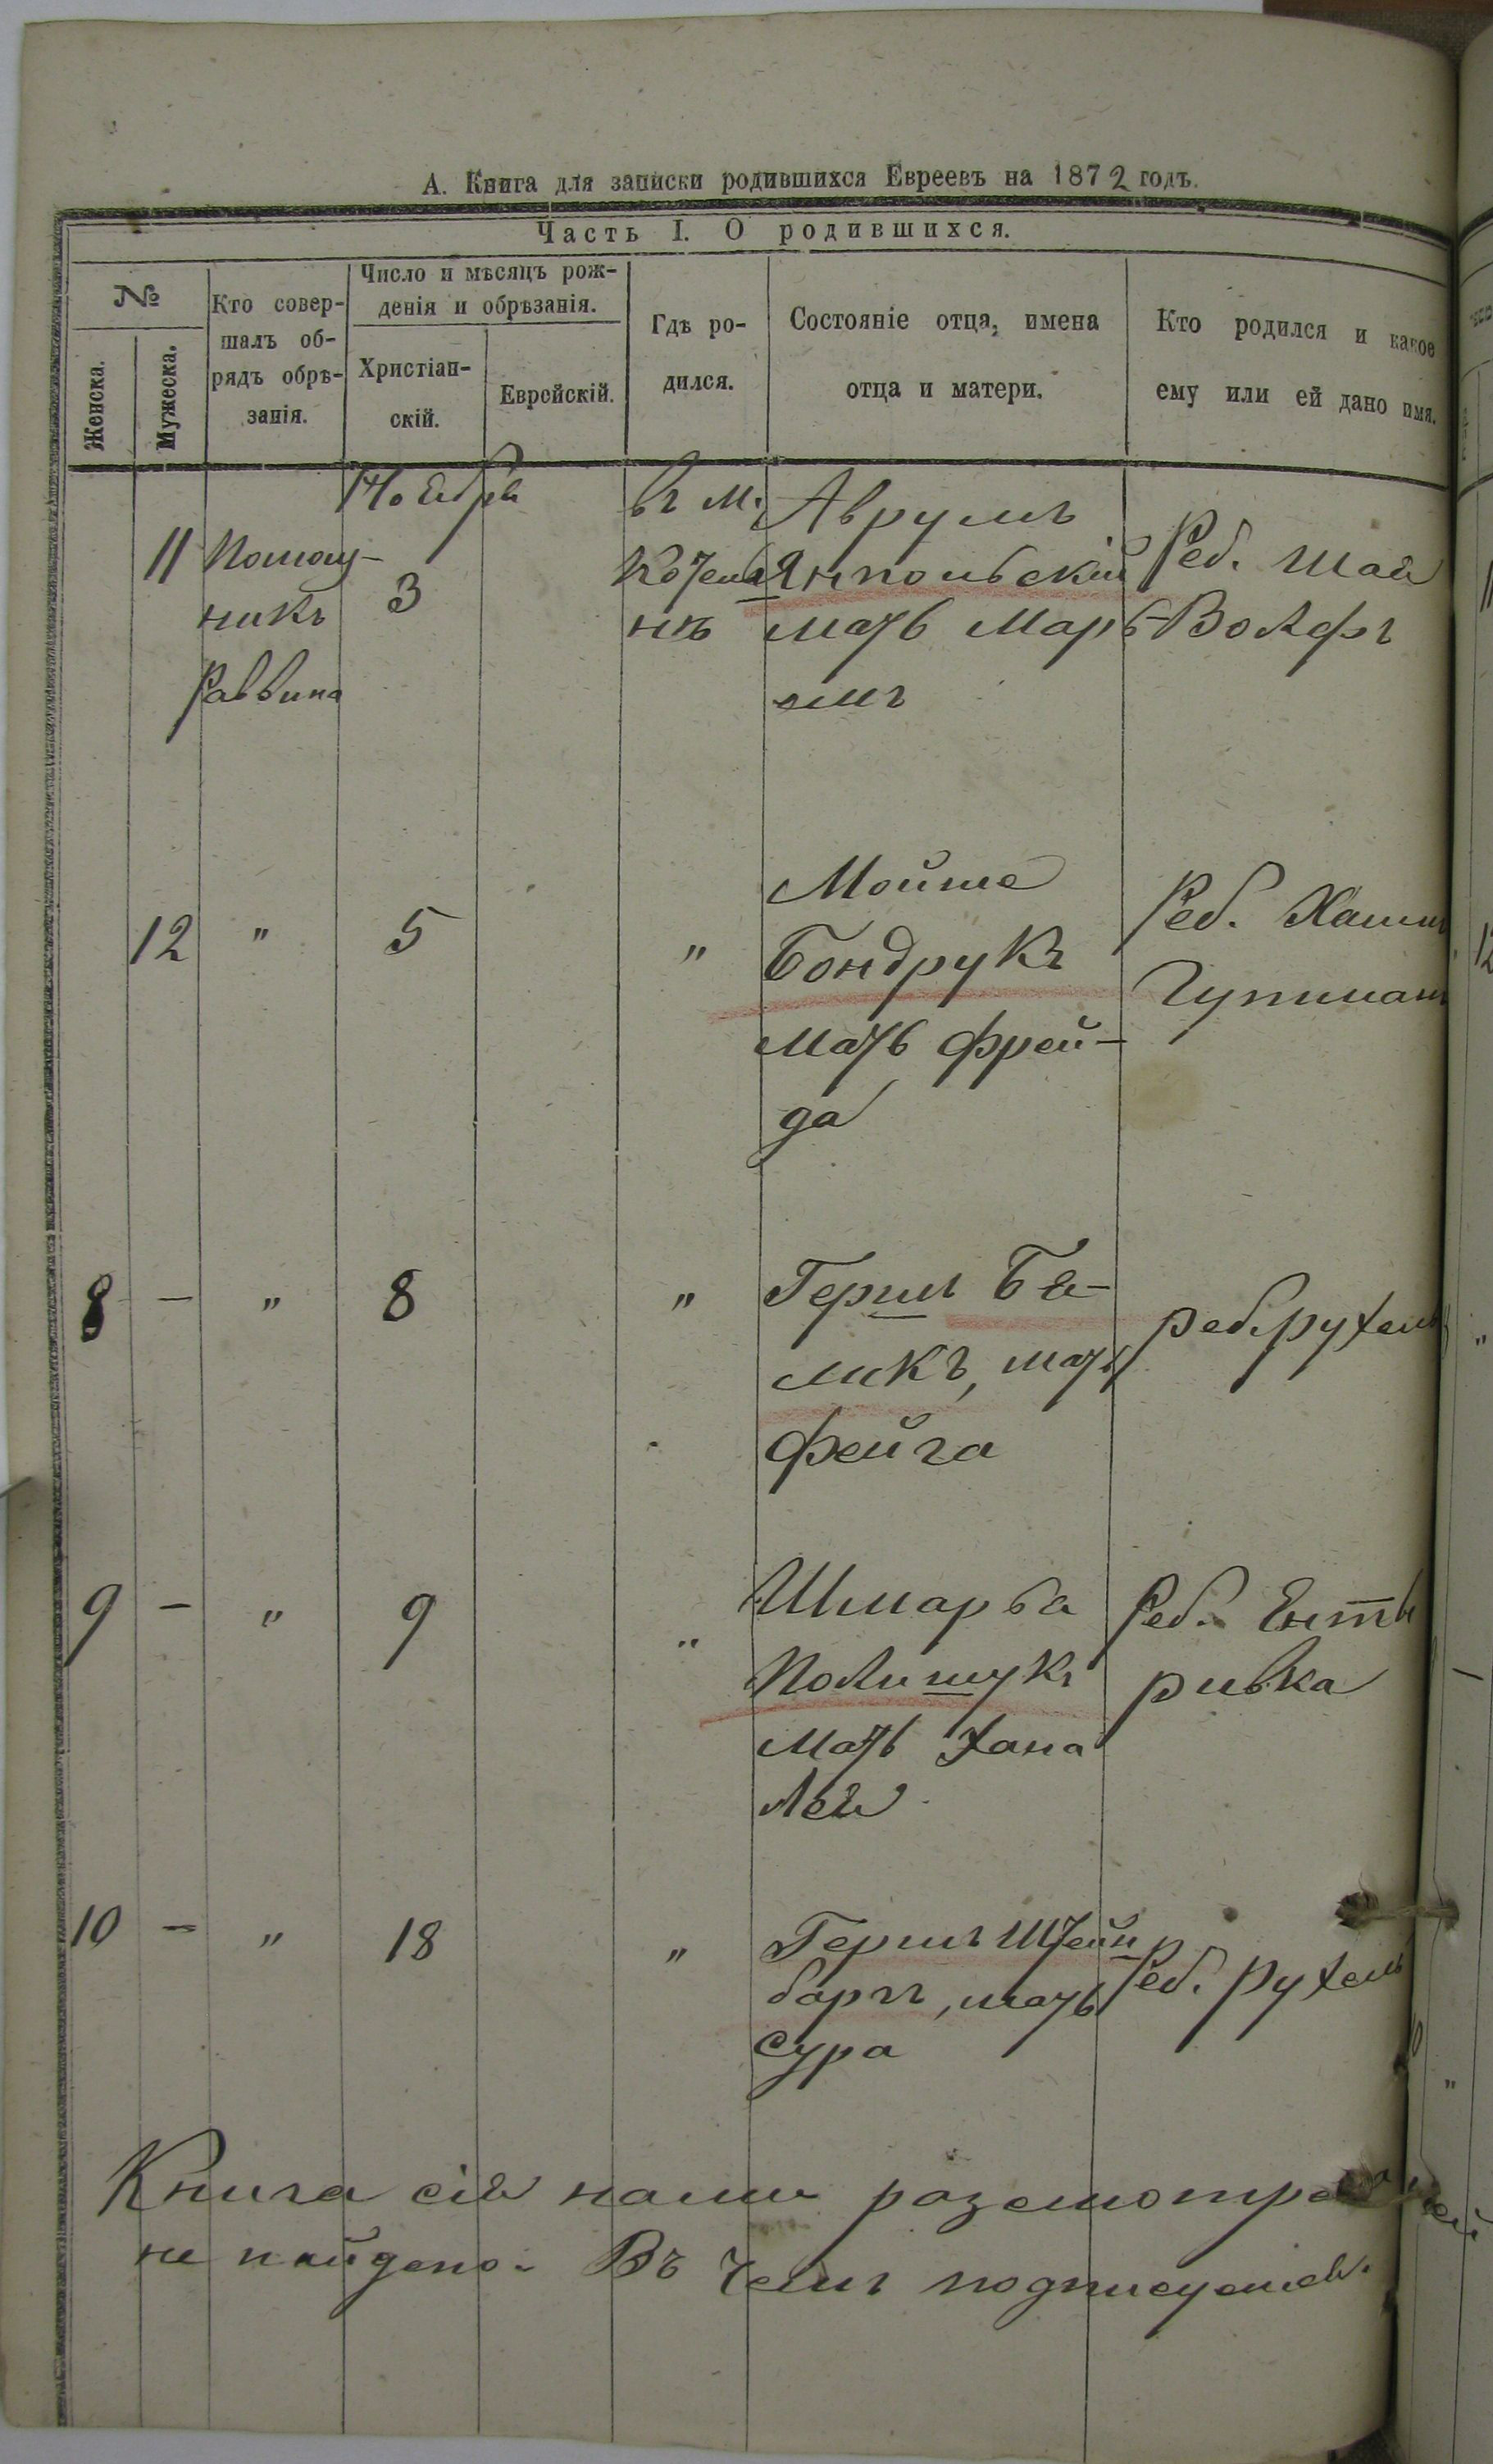 А. Книга для записки родившихся Евреевъ на 1872 годъ.
Часть I. О родившихся.
№
Женска.
Мужеска.
Кто совер-
шалъ об-
рядъ обрѣ-
занія.
Число и мѣсяцъ рож-
денія и обрѣзанія.
Христіан-
скій.
Еврейскій.
Гдѣ ро-
дился.
Состояніе отца, имена
отца и матери.
Кто родился и какое
ему или ей дано имя.
Ноября
11
Помощ-
никъ
Раввина
3
въ м.
Котель
нѣ
Аврумъ
Янпольскій
мать Марь-
емъ
Реб. Шая
Вольфъ
12
"
5
"
Мойше
Бондрукъ
мать Фрей-
да
Реб. Хаимъ
8
–
"
8
"
Герш Бя-
ликъ, мать
Фейга
реб. рухель
9
–
"
9
"
Шмарьа
Полишукъ
Мать Хана
Лея
Реб. Ента
ривка
10
–
"
18
"
Гершъ Штейн
баргъ, мать
Сура
Реб. Рухель
Книга сія нами разсмотре
не найдено. Въ чемъ подписуемся.